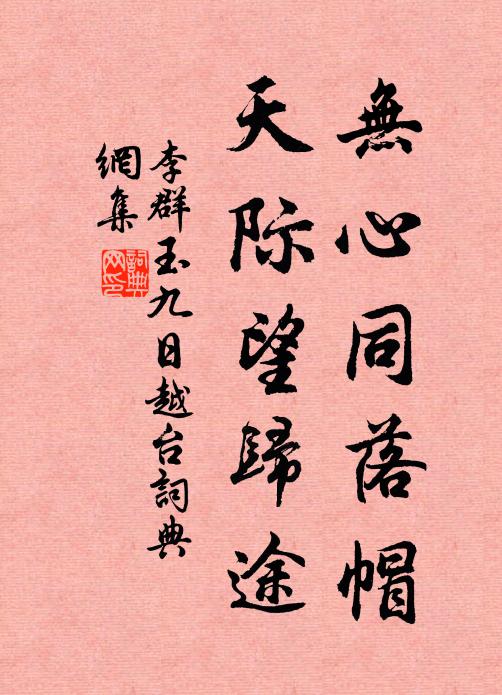 無心同落帽
天际望歸途
李群玉九日越台詞典
網集
詞典
网印